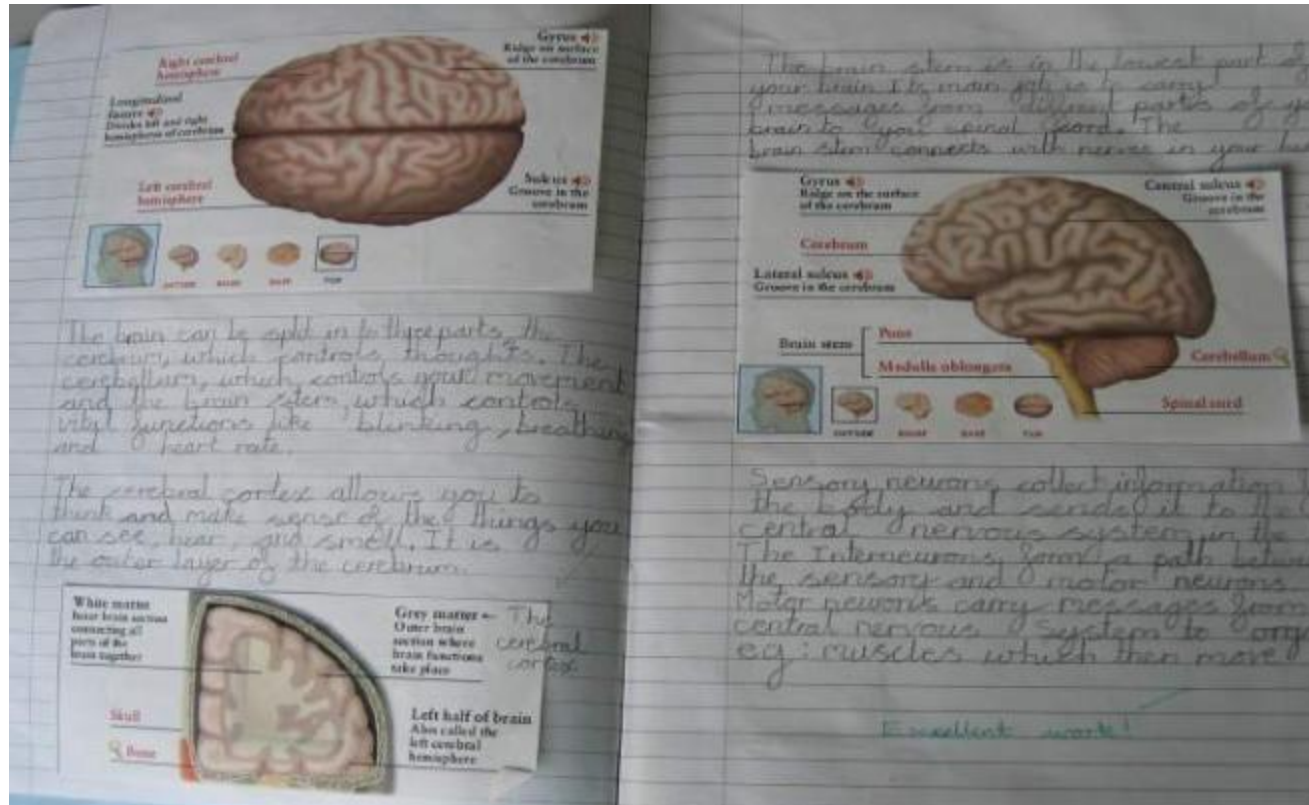 Right cerebral
hemisphere
Gyrus
Ridge on surface
of the cerebrum
Longitudinal
fissure
Divides left and right
hemispheres of cerebrum
Left cerebral
hemisphere
Sulcus
Groove in the
cerebrum
OUTSIDE INSIDE BASE TOP
The brain can be split in to three parts, the
cerebrum, which controls thoughts. The
cerebellum, which controls your movement
and the brain stem, which controls
vital functions like blinking, breathing
and heart rate.
The cerebral cortex allows you to
think and make sense of the things you
can see, hear, and smell. It is
the outer layer of the cerebrum.
White matter
Inner brain section
connecting all
parts of the
brain together
Grey matter
Outer brain
section where
brain functions
take place
The
cerebral
cortex
Skull
Bone
Left half of brain
Also called the
left cerebral
hemisphere
The brain stem is in the lowest part of
your brain Its main job is to carry
messages from different parts of
brain to your spinal cord. The
brain stem connects with nerves in your
Gyrus
Ridge on the surface
of the cerebrum
Central sulcus
Groove in the
cerebrum
Cerebrum
Lateral sulcus
Groove in the cerebrum
Brain stem
Pons
Medulla oblongata
Cerebellum
Spinal cord
OUTSIDE INSIDE BASE TOP
Sensory neurons collect information
the body and sends it to the
central nervous system in the
The Interneurons form a path
the sensory and motor neurons
Motor neurons carry messages from
central nervous system to
eg: muscles which then move
Excellent work!